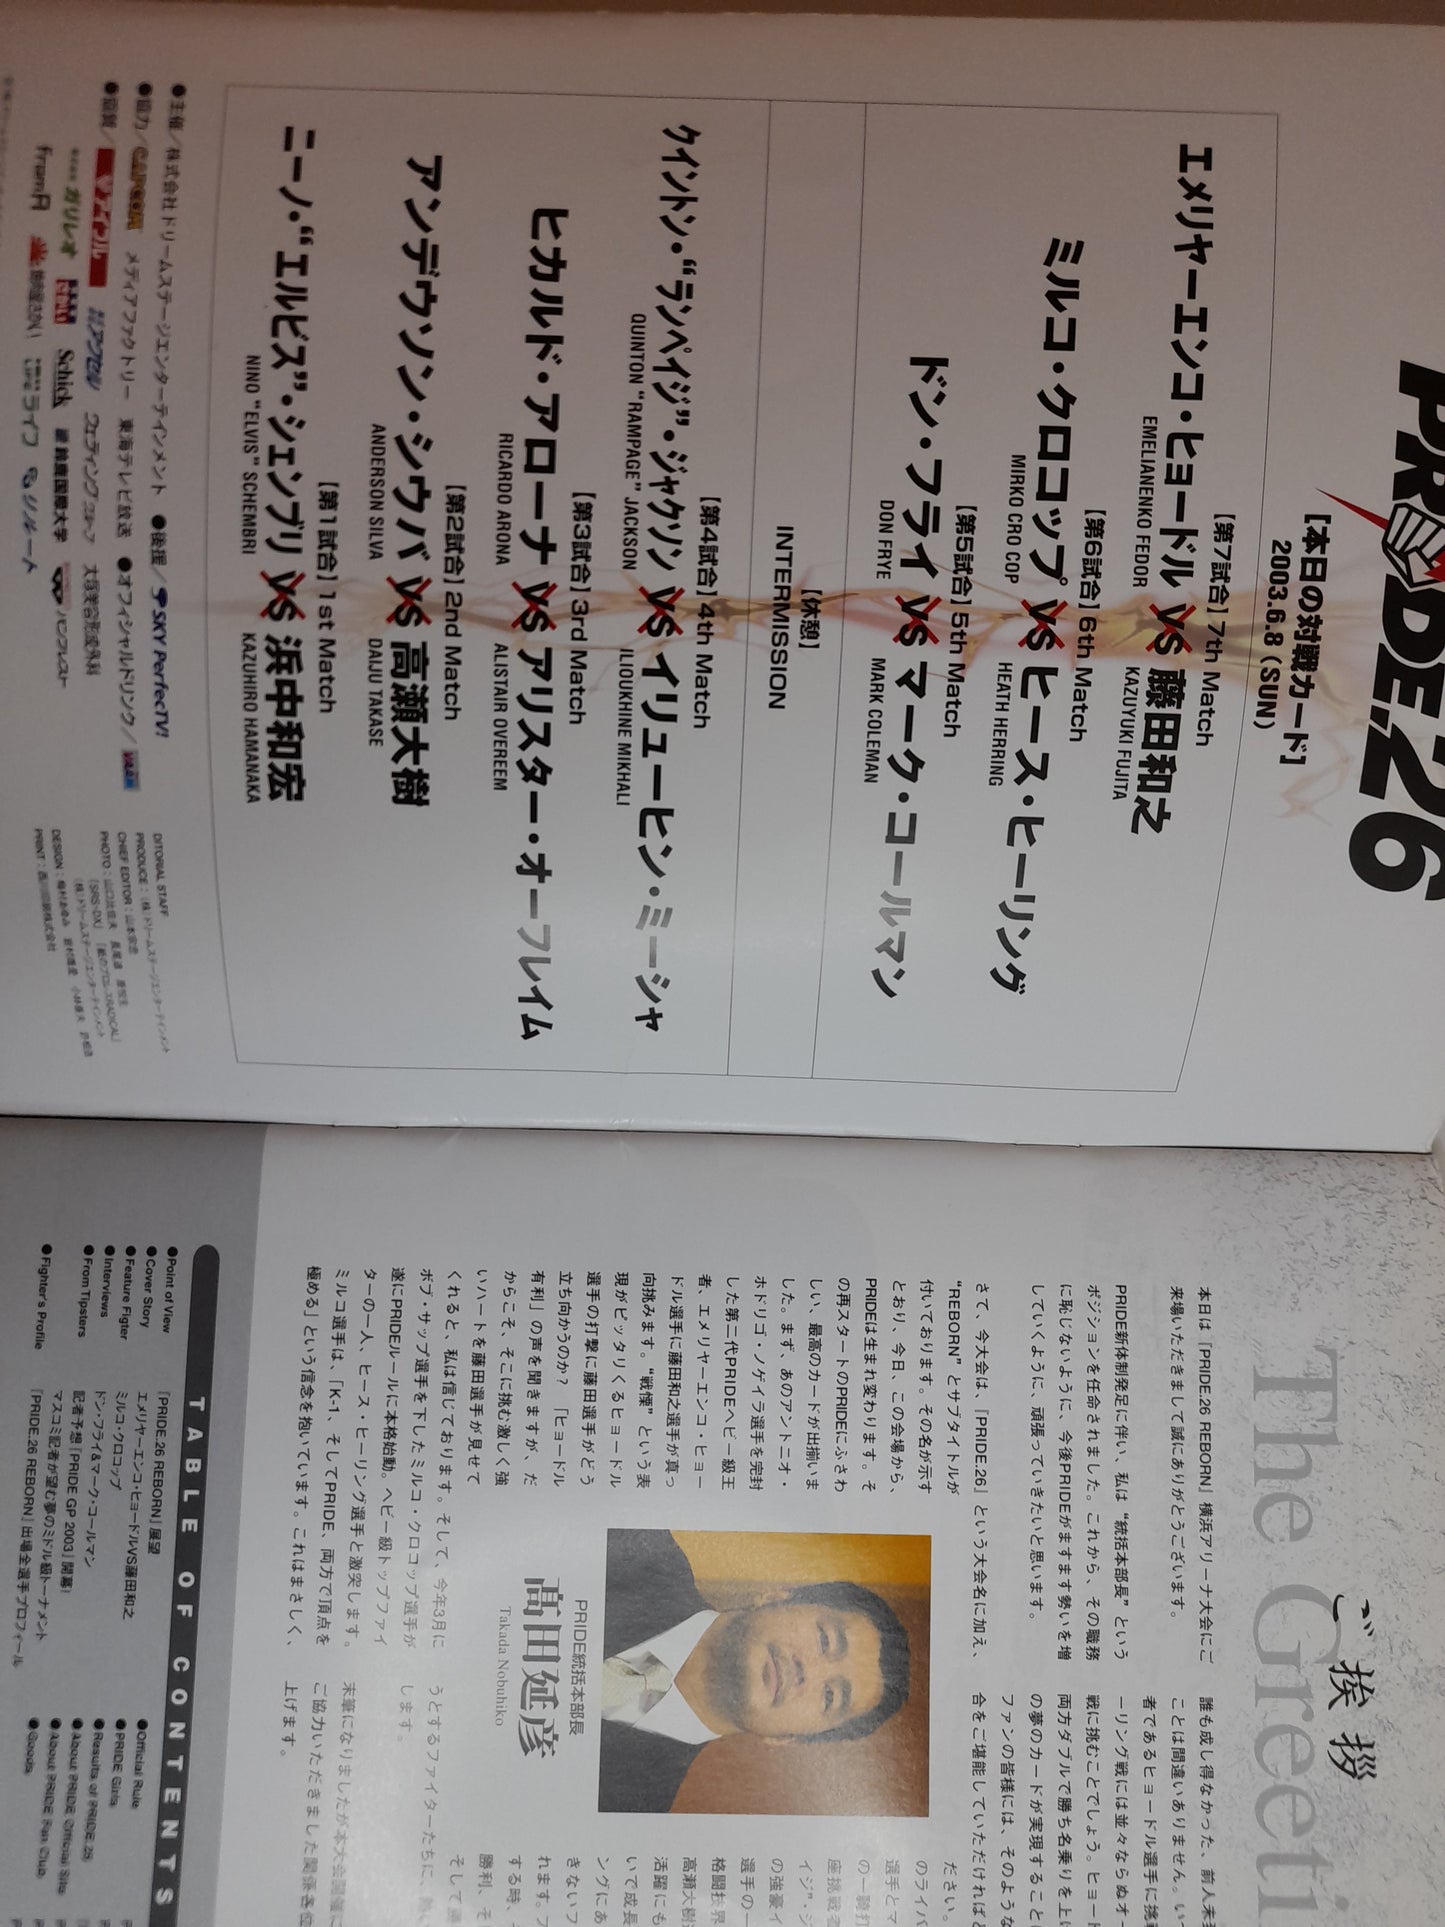 PRIDE.26
[本日の対戦カード]
2003.6.8 (SUN)
[第7試合] 7th Match
エメリヤーエンコ・ヒョードル VS 藤田和之
EMELIANENKO FEDOR KAZUYUKI FUJITA
[第6試合] 6th Match
ミルコ・クロコップ VS ヒース・ヒーリング
MIRKO CRO COP HEATH HERRING
[第5試合] 5th Match
ドン・フライ VS マーク・コールマン
DON FRYE MARK COLEMAN
[休憩]
INTERMISSION
[第4試合] 4th Match
クイントン・“ランペイジ”・ジャクソン VS イリューヒン・ミーシャ
QUINTON “RAMPAGE” JACKSON ILIOUKHINE MIKHAIL
[第3試合] 3rd Match
ヒカルド・アローナ VS アリスター・オーフレイム
RICARDO ARONA ALISTAIR OVEREEM
[第2試合] 2nd Match
アンデウソン・シウバ VS 高瀬大樹
ANDERSON SILVA DAIJU TAKASE
[第1試合] 1st Match
ニーノ・“エルビス”・シェンブリ VS 浜中和宏
NINO “ELVIS” SCHEMBRI KAZUHIRO HAMANAKA
●主催／株式会社ドリームステージエンターテインメント ●後援／SKY PerfecTV!
●協力／CAPCOM メディアファクトリー 東海テレビ放送 ●オフィシャルドリンク／
●協賛／アイフル アクセル ウェディング 大塚美容形成外科
ガリレオ Schick 鈴鹿国際大学
FromA ライフ リルート
DITORIAL STAFF
PRODUCE：(株)ドリームステージエンターテインメント
CHIEF EDITOR：山本宗忠
DESIGN：
PRINT：西川印刷株式会社
The Greeti
ご挨拶
本日は「PRIDE.26 REBORN」横浜アリーナ大会にご
来場いただきまして誠にありがとうございます。
PRIDE新体制発足に伴い、私は“統括本部長”という
ポジションを任命されました。これから、その職務
に恥じないように、今後PRIDEがますます勢いを増
していくように、頑張っていきたいと思います。
さて、今大会は、「PRIDE.26」という大会名に加え、
“REBORN”とサブタイトルが
付いております。その名が示す
とおり、今日、この会場から、
PRIDEは生まれ変わります。そ
の再スタートのPRIDEにふさわ
しい、最高のカードが出揃いま
した。まず、あのアントニオ・
ホドリゴ・ノゲイラ選手を完封
した第二代PRIDEヘビー級王
者、エメリヤーエンコ・ヒョー
ドル選手に藤田和之選手が真っ
向挑みます。“戦慄”という表
現がピッタリくるヒョードル
選手の打撃に藤田選手がどう
立ち向かうのか？ 「ヒョードル
有利」の声を聞きますが、だ
からこそ、そこに挑む激しく強
いハートを藤田選手が見せて
くれると、私は信じております。そして、今年3月に
ボブ・サップ選手を下したミルコ・クロコップ選手が
遂にPRIDEルールに本格始動。ヘビー級トップファイ
ターの一人、ヒース・ヒーリング選手と激突します。
ミルコ選手は、「K-1、そしてPRIDE、両方で頂点を
極める」という信念を抱いています。これはまさしく、
誰も成し得なかった、前人未
ことは間違いありません。い
者であるヒョードル選手に挑
ーリング戦には並々ならぬオ
戦に挑むことでしょう。ヒョード
両方ダブルで勝ち名乗りを上げ
の夢のカードが実現すること
ファンの皆様には、そのような
合をご堪能していただければと
PRIDE統括本部長
髙田延彦
Takada Nobuhiko
うとするファイターたちに
します。
末筆になりましたが本大会開催に
ご協力いただきました関係各位
上げます。
ださい。
のライバ
選手とマ
の一騎打
座挑戦者
イジ”・ジ
の強豪イ
選手の一
格闘技界
高瀬大樹
活躍にも
いで成長
ングにあ
きないフ
れます。フ
する時、
勝利、そ
そして勇
TABLE OF CONTENTS
●Point of View 「PRIDE.26 REBORN」展望
●Cover Story エメリヤーエンコ・ヒョードルVS藤田和之
●Feature Figter ミルコ・クロコップ
●Interviews ドン・フライ&マーク・コールマン
●From Tipsters 記者予想「PRIDE GP 2003」開幕!
マスコミ記者が望む夢のミドル級トーナメント
●Fighter's Profile 「PRIDE.26 REBORN」出場全選手プロフィール
●Official Rule
●PRIDE Girls
●Results of PRIDE.25
●About PRIDE Official Site
●About PRIDE Fan Club
●Goods